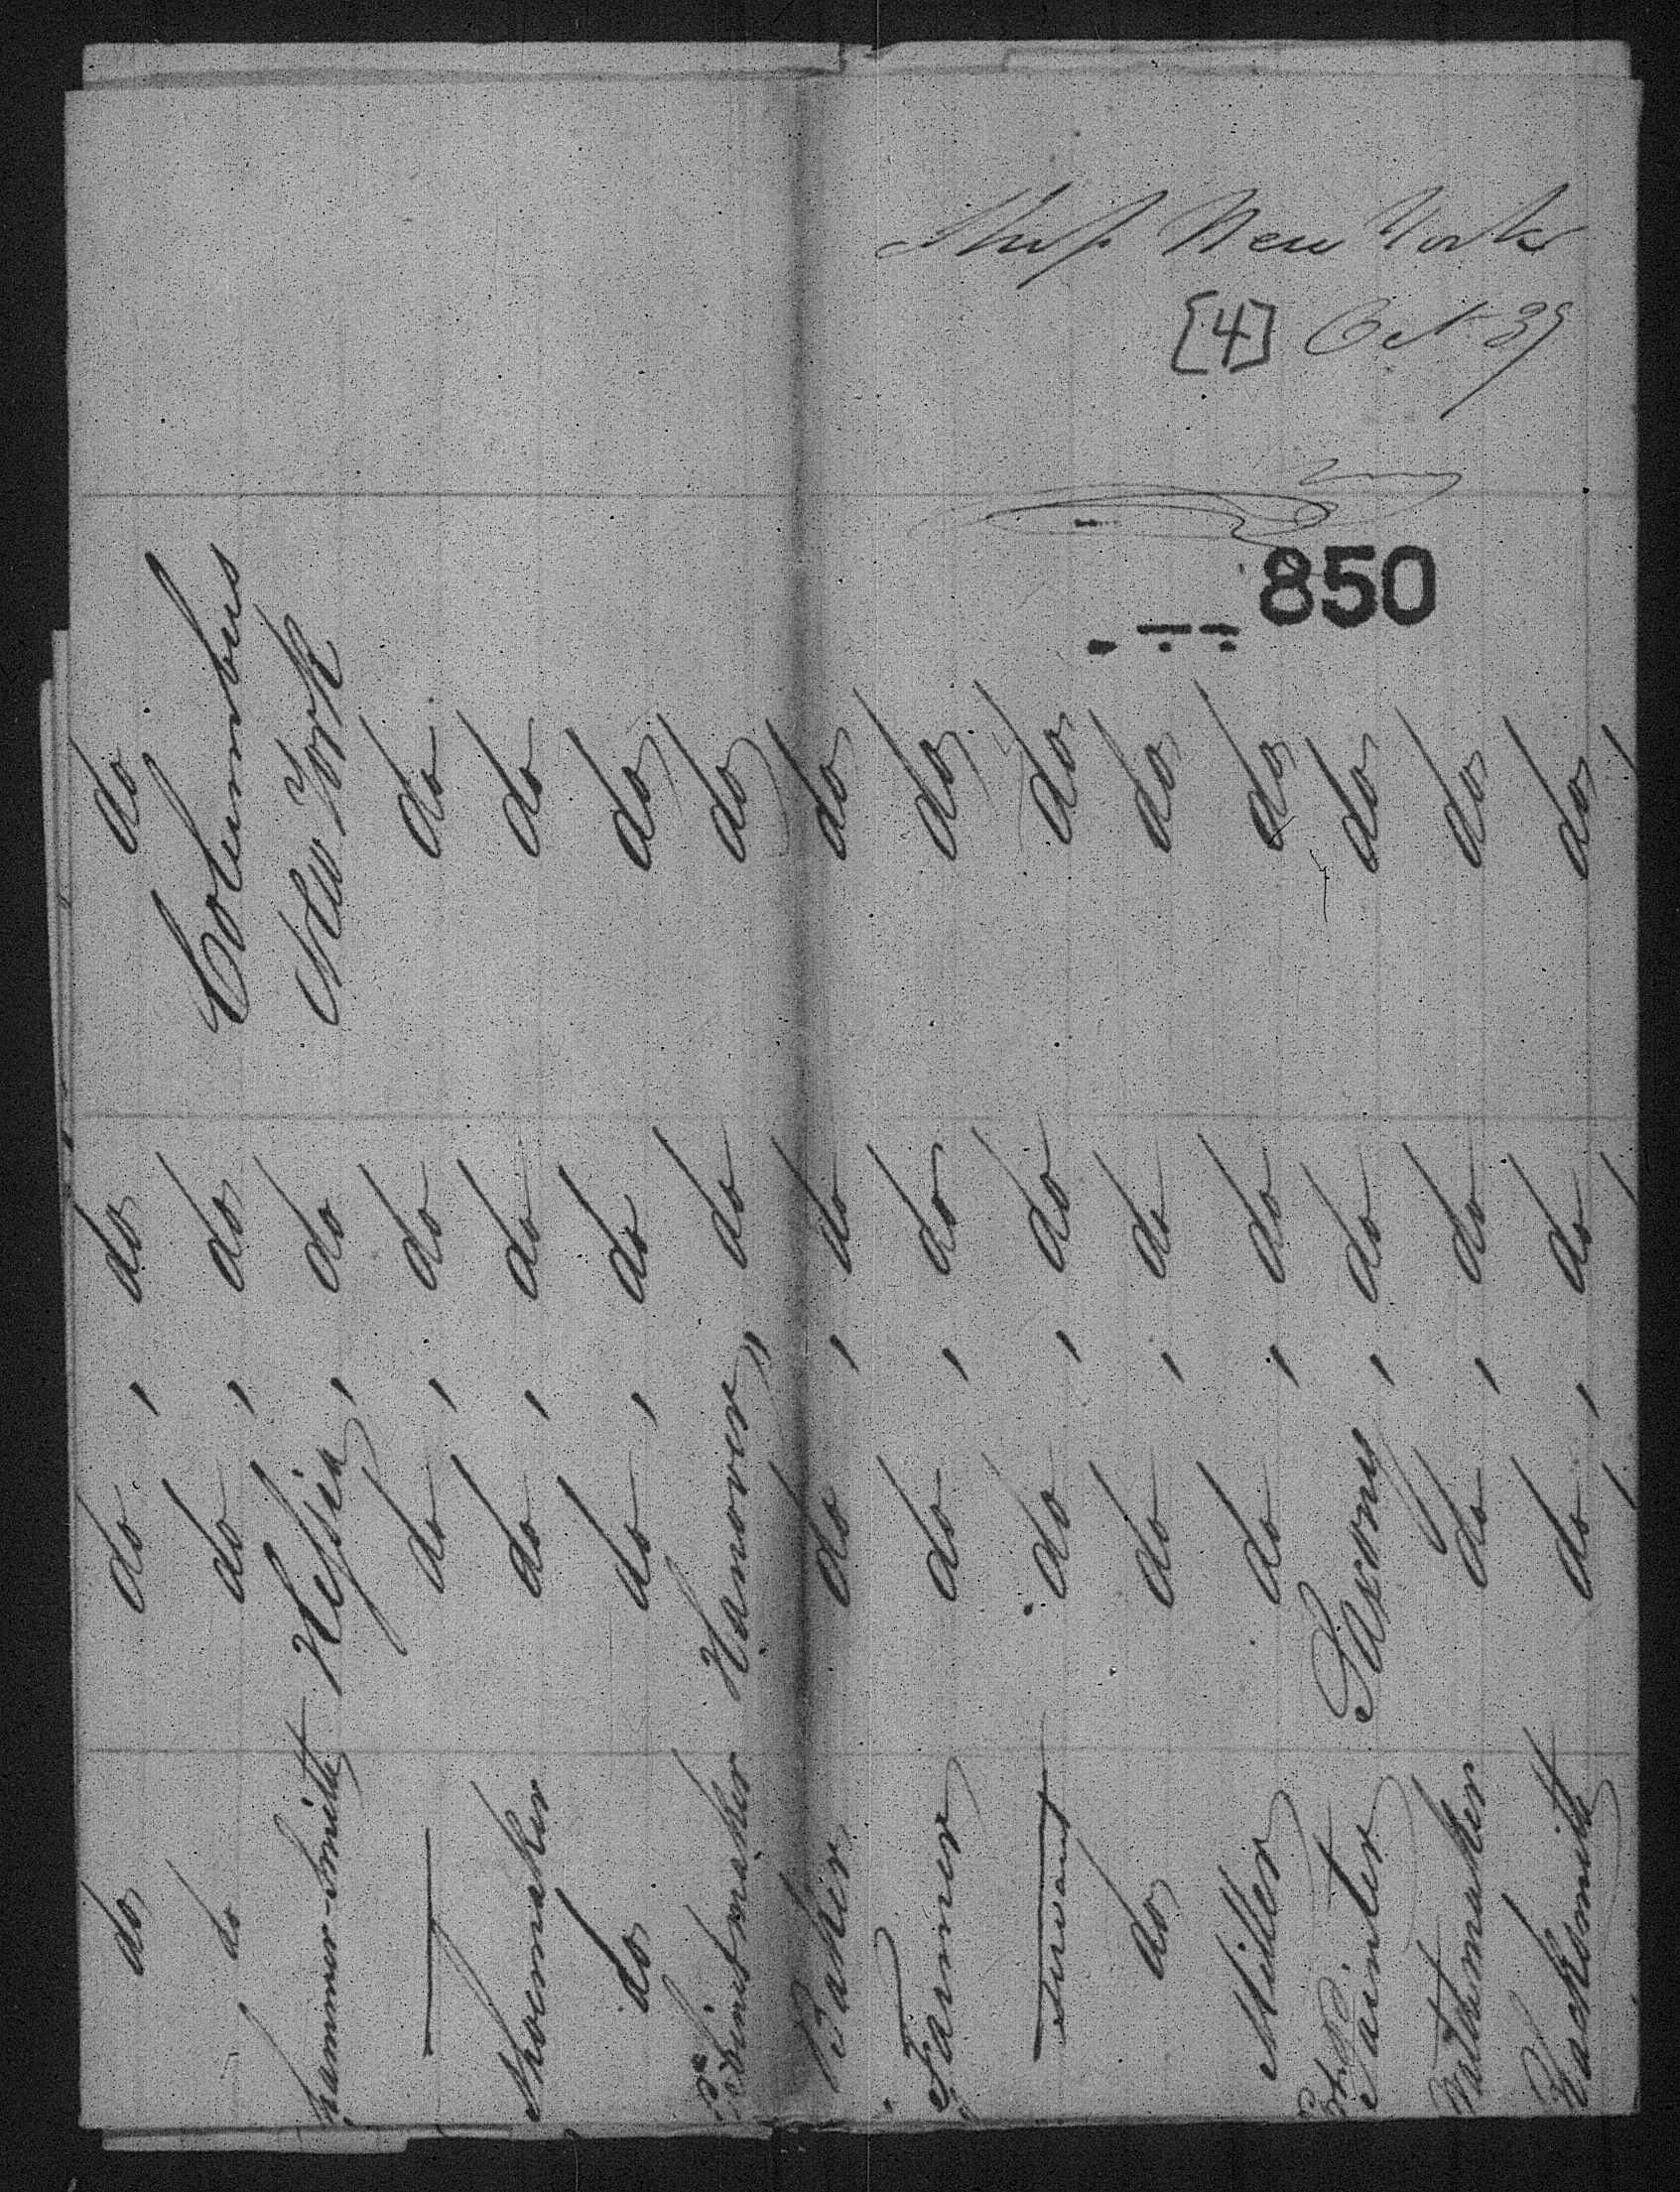 Ship New York
[4] Oct 39
850
do do do do
do do do Columbus
Hammer-Smith Hessia do New York
— do do do
Shoemaker do do do
do do do do
Hanover do do
Baker do do do
Farmer do do do
Servant do do do
do do do do
Miller do do do
Painter Saxony do do
do do do
do do do